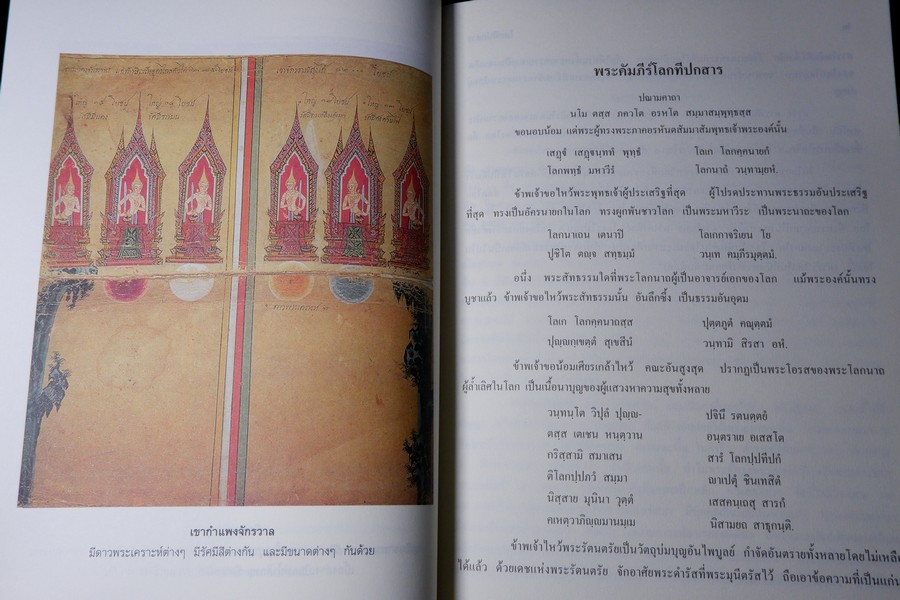 เขากำแพงจักรวาล
มีดาวพระเคราะห์ต่างๆ มีรัศมีสีต่างกัน และมีขนาดต่างๆ กันด้วย
พระคัมภีร์โลกทีปกสาร
ปณามคาถา
นโม ตสฺส ภควโต อรหโต สมฺมาสมฺพุทฺธสฺส
ขอนอบน้อม แด่พระผู้ทรงพระภาคอรหันตสัมมาสัมพุทธเจ้าพระองค์นั้น
เสฏฺฐํ เสฏฺฐนฺททํ พุทฺธํ โลเก โลกคฺคนายกํ
โลกพทฺธํ มหาวีรํ โลกนาถํ วนฺทามฺยหํ.
ข้าพเจ้าขอไหว้พระพุทธเจ้าผู้ประเสริฐที่สุด ผู้โปรดประทานพระธรรมอันประเสริฐ
ที่สุด ทรงเป็นอัครนายกในโลก ทรงผูกพันชาวโลก เป็นพระมหาวีระ เป็นพระนาถะของโลก
โลกนาเถน เตนาปิ โลเกกาจริเยน โย
ปูชิโต ตญฺจ สทฺธมฺมํ วนฺเท คมฺภีรมุตฺตมํ.
อนึ่ง พระสัทธรรมใดที่พระโลกนาถผู้เป็นอาจารย์เอกของโลก แม้พระองค์นั้นทรง
บูชาแล้ว ข้าพเจ้าขอไหว้พระสัทธรรมนั้น อันลึกซึ้ง เป็นธรรมอันอุดม
โลเก โลกคฺคนาถสฺส ปุตฺตภูตํ คณุตฺตมํ
ปุญฺญกฺเขตฺตํ สุเขสีนํ วนฺทามิ สิรสา อหํ.
ข้าพเจ้าขอน้อมเศียรเกล้าไหว้ คณะอันสูงสุด ปรากฏเป็นพระโอรสของพระโลกนาถ
ผู้ล้ำเลิศในโลก เป็นเนื้อนาบุญของผู้แสวงหาความสุขทั้งหลาย
วนฺทนฺโต วิปุลํ ปุญฺญ- ปจินึ รตนตฺตยํ
ตสฺส เตเชน หนฺตฺวาน อนฺตราเย อเสสโต
กริสฺสามิ สมาเสน สารํ โลกปฺปทีปกํ
ติโลกปฺปภวํ สมฺมา ญาเปตุํ ชินเทสิตํ
นิสฺสาย มุนินา วุตฺตํ เสสคนฺเถสุ สารกํ
คเหตฺวาภิญฺญมานมฺเม นิสามยถ สาธุกนฺติ.
ข้าพเจ้าไหว้พระรัตนตรัยเป็นวัตถุบ่มบุญอันไพบูลย์ กำจัดอันตรายทั้งหลายโดยไม่เหลือ
ได้แล้ว ด้วยเดชแห่งพระรัตนตรัย จักอาศัยพระดำรัสที่พระมุนีตรัสไว้ ถือเอาข้อความที่เป็นแก่น